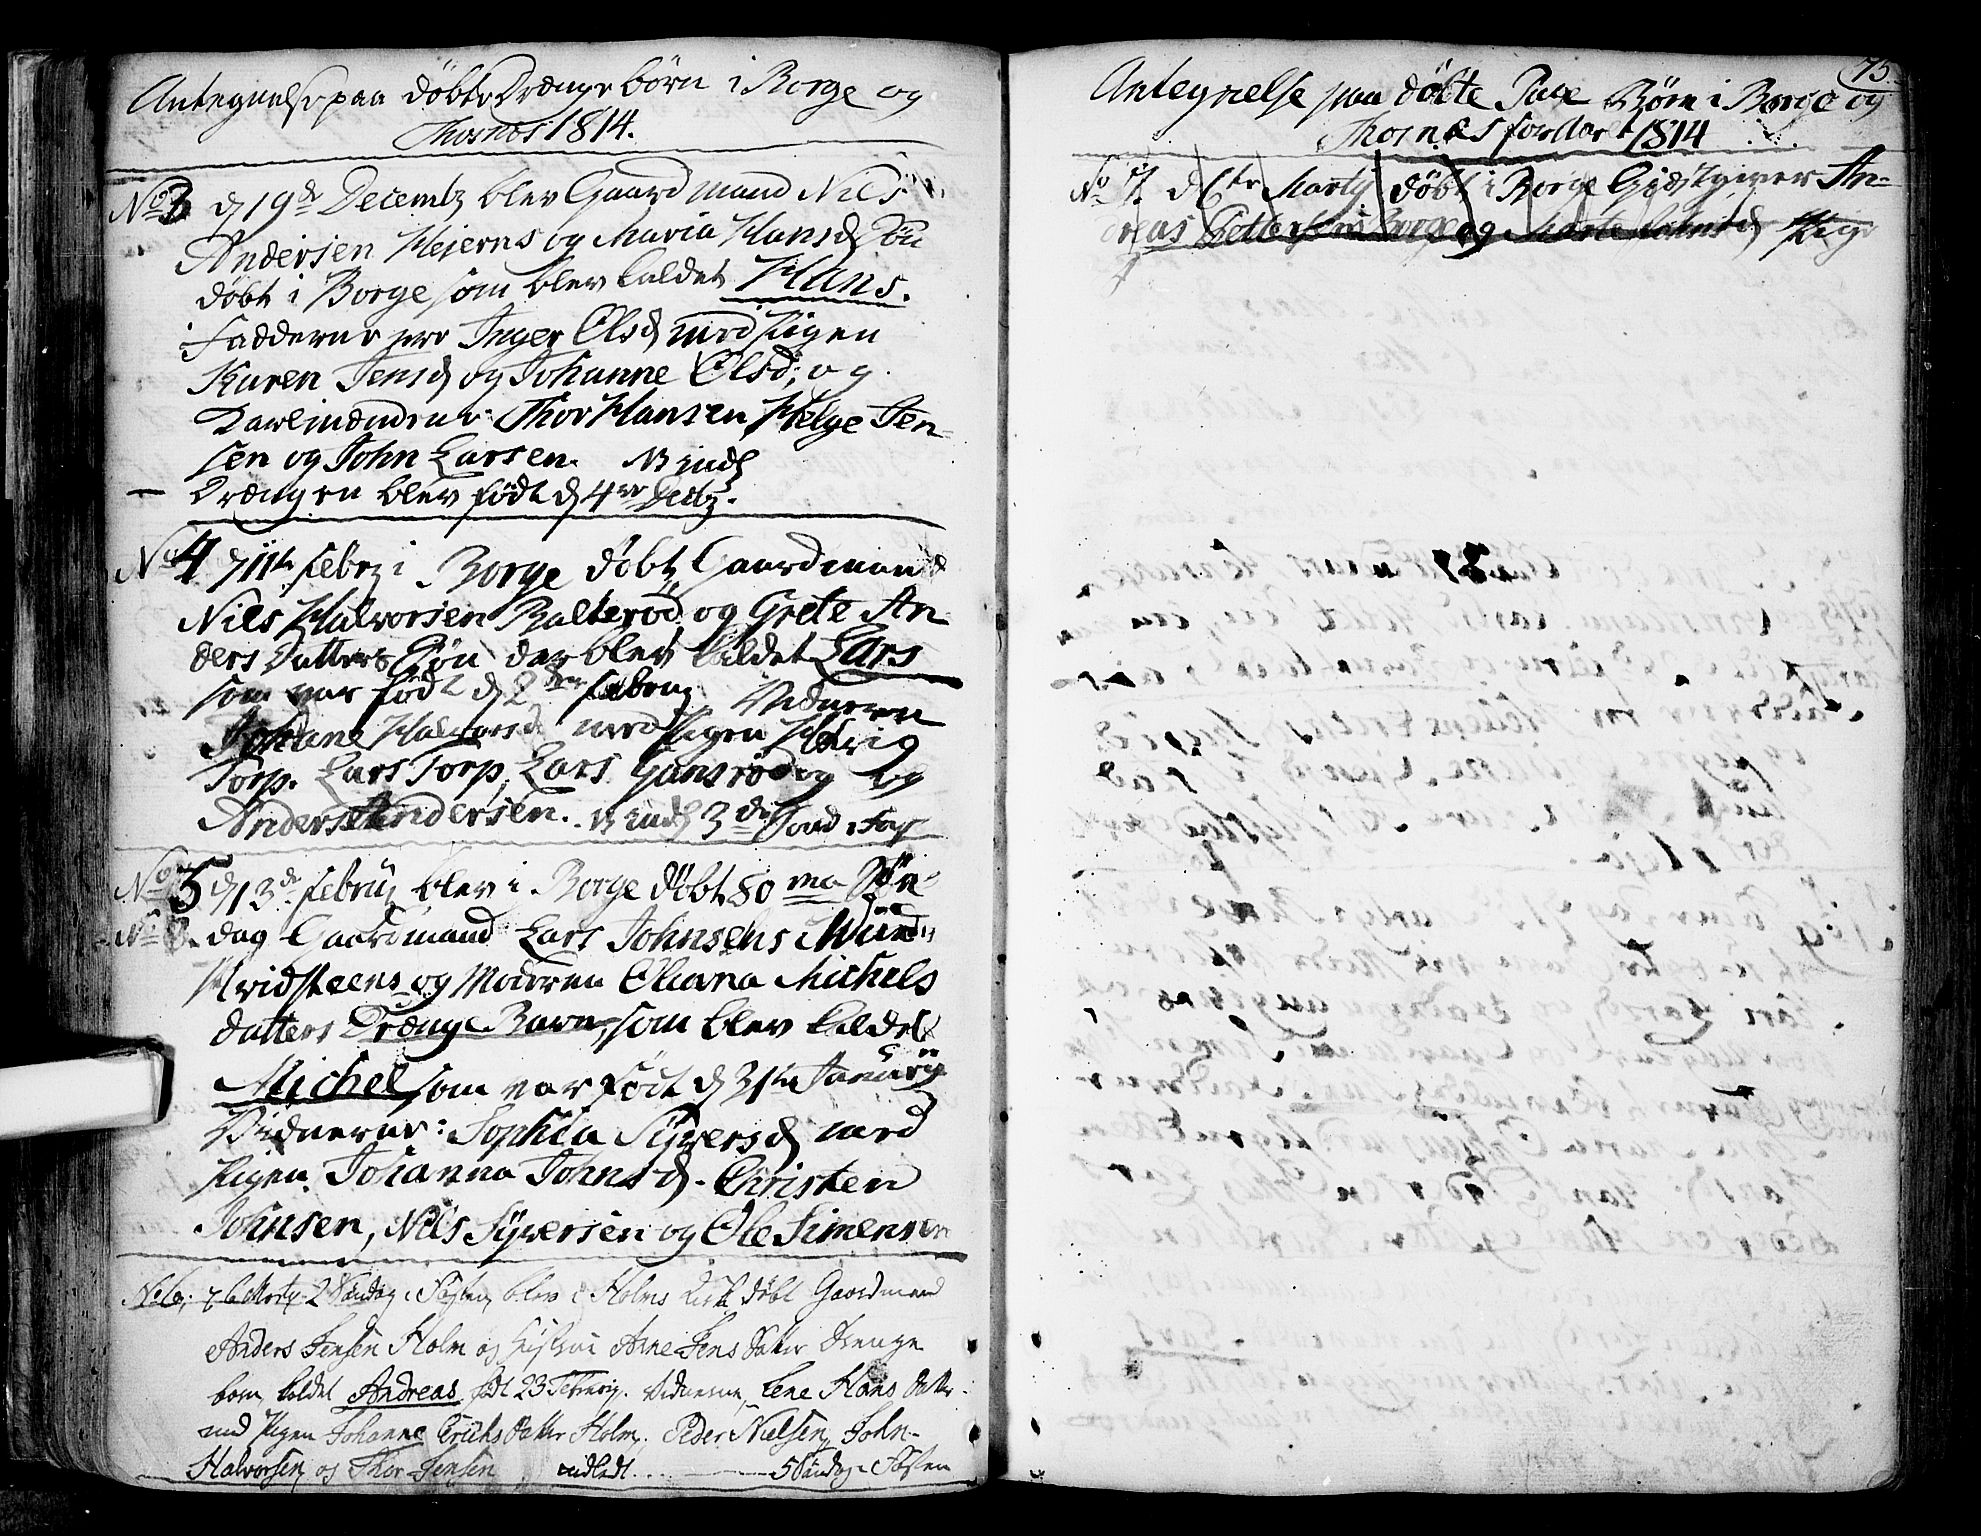 Antegnelse paa døbte Drenge børn i Borge og
Thosnæs 1814.
No 3 d 19de Decembr blev Gaardmand Nils
Andersen Hejerns og Maria Hansd Søn
døbt i Borge som blev kaldet Hans.
Fadderne ere Inger Olsd med Pigen
Karen Jensd og Johanne Olsd, og
Karlmændene: Thor Hansen, Helge Jen-
sen og John Larsen. NB indl
Drængen blev født d 4de Decbr.
No 4 d 11te Febr i Borge døbt Gaardmand
Nils Halvorsen Balterød og Grete An-
ders Datters Søn der blev kaldet Lars
som var født d 2den Febru Vidneren
Johane Halvorsd med Pigen Hedvig
Torp. Lars Torp, Lars Gansrød og
Anders Andersen. indl 3de Sønd i Fast
No 5 d 13de Februj blev i Borge døbt 80 ma Søn-
dag Gaardmand Lars Johnsens
Hvidsteens og Moderen Oliana Michels
datters Drænge Barn, som blev kaldet
Michel som var født d 31te Januarij
Vidnerne: Sophia Syversd med
Pigen Johanna Johnsd. Christen
Johnsen, Nils Syversen og Ole Simensen
No 6, d 6 Marty 2 Søndag i Fasten blev i Holms Kirk døbt Gaardmand
Anders Jensen Holm og Hustrue Arne Jens Datter Drenge
barn, kaldet Andreas født 23 Februarij. Vidnerne, Lene Hans Datter
med Pigen Johanne Erichs Datter Holm, Peder Nielsen, John
Halvorsen og Thor Jensen indledt . . . 5 Søndag i Fasten
75.
Antegnelse paa døbte Pige Børn i Borge og
Thosnæs for Aaret 1814
No 7. d 6te Martij døbt i Borge Gjestgiver An-
dreas Petterssen Borge og Marte Johnsd Pige